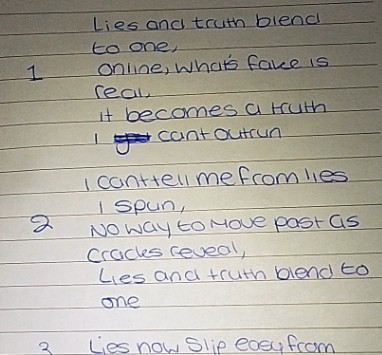 Lies and truth blend
to one,
1 online, what's fake is
real,
it becomes a truth
I cant outrun
I can't tell me from lies
I spun,
2 No way to Move past as
cracks reveal,
Lies and truth blend to
one
3 Lies now slip easy from